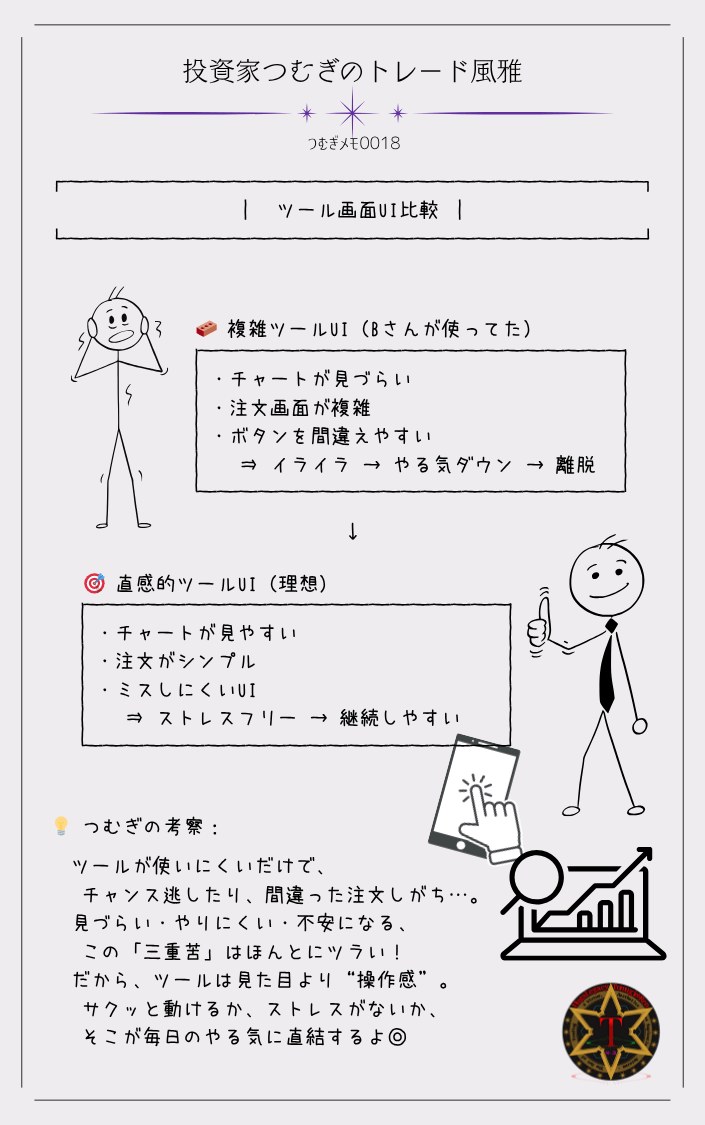 投資家つむぎのトレード風雅
つむぎメモ0018
| ツール画面UI比較 |
複雑ツールUI（Bさんが使ってた）
・チャートが見づらい
・注文画面が複雑
・ボタンを間違えやすい
⇒ イライラ → やる気ダウン → 離脱
↓
直感的ツールUI（理想）
・チャートが見やすい
・注文がシンプル
・ミスしにくいUI
⇒ ストレスフリー → 継続しやすい
つむぎの考察：
ツールが使いにくいだけで、
チャンス逃したり、間違った注文しがち…。
見づらい・やりにくい・不安になる、
この「三重苦」はほんとにツラい！
だから、ツールは見た目より“操作感”。
サクッと動けるか、ストレスがないか、
そこが毎日のやる気に直結するよ◎
T